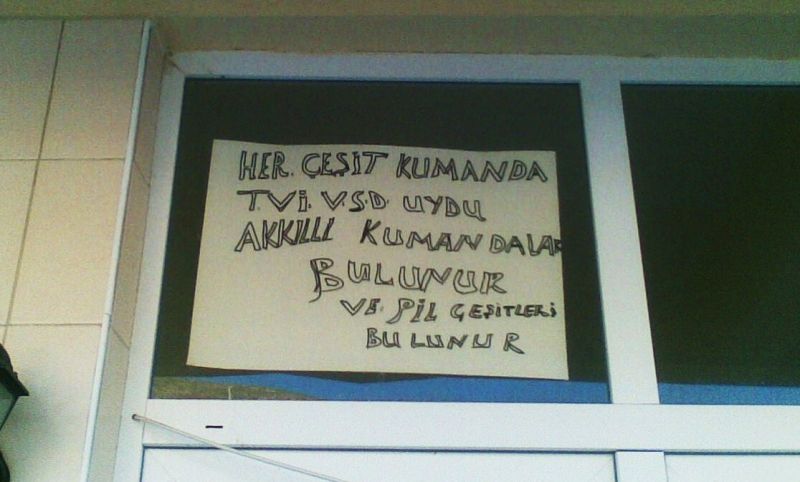 HER. ÇEŞİT KUMANDA
T.Vİ. V.S.D. UYDU
AKKILLI KUMANDALAR
BULUNUR
VE. PİL ÇEŞİTLERİ
BULUNUR